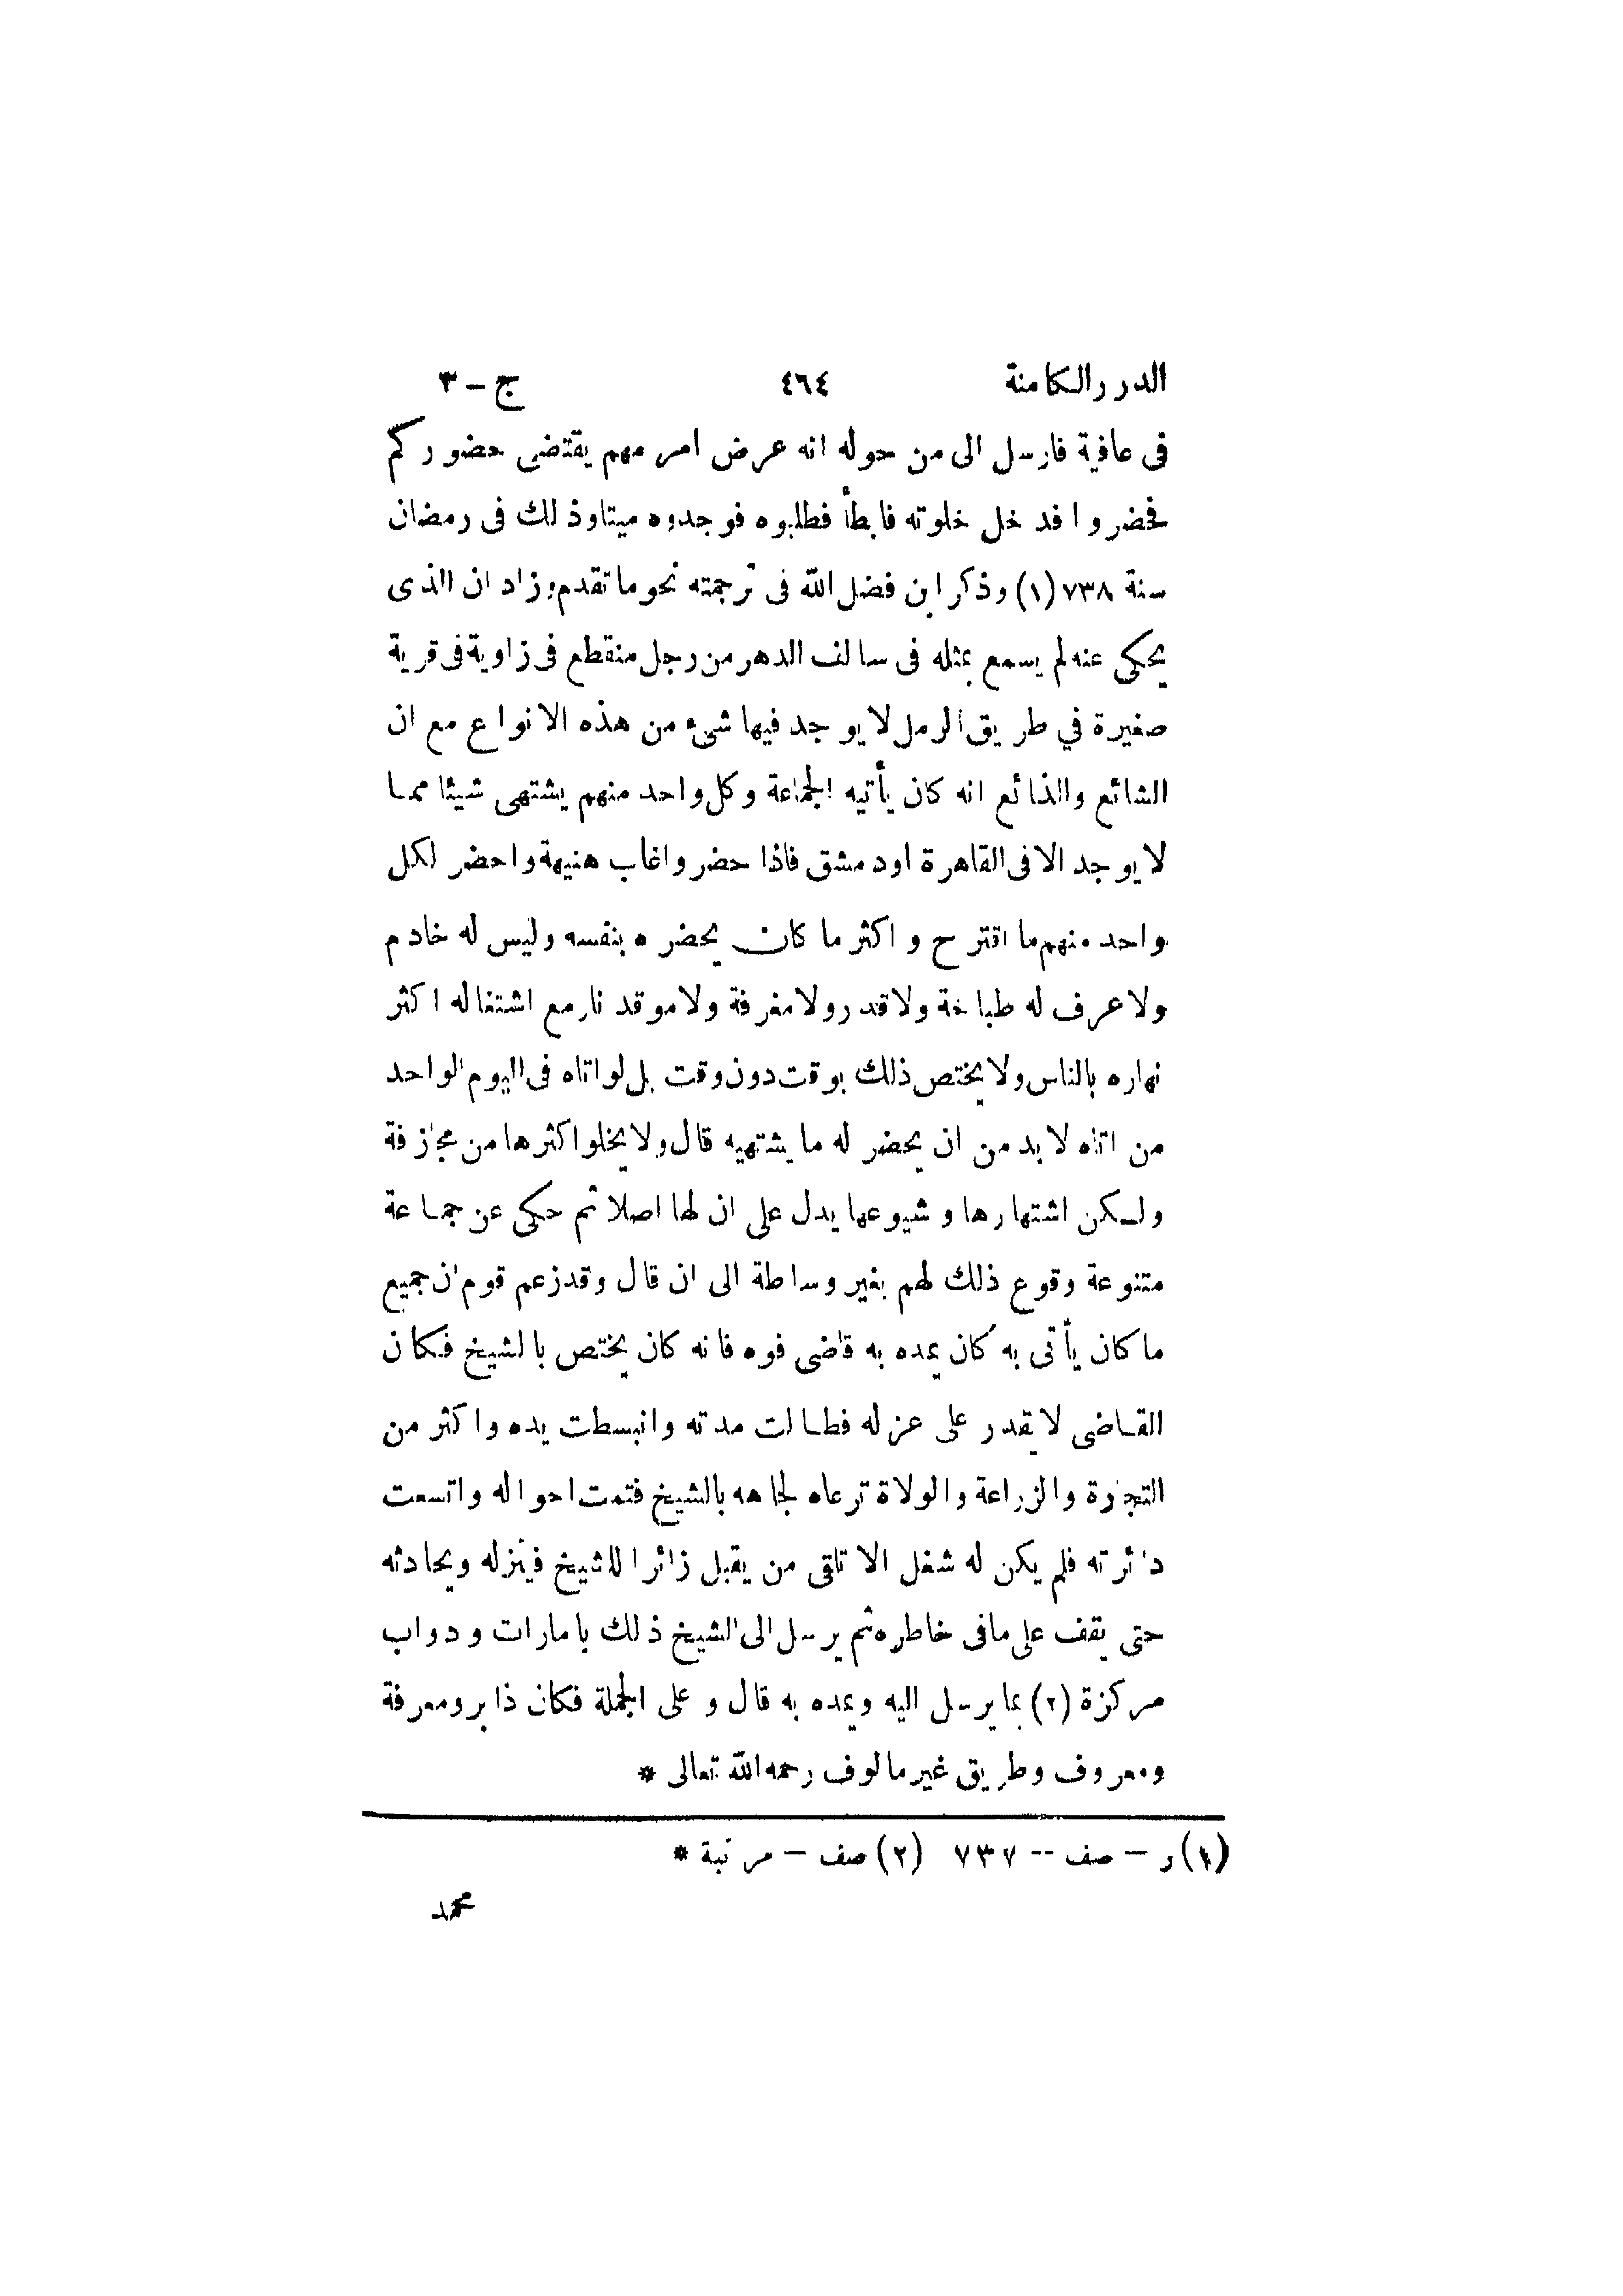 الدرر الكامنة ٤٦٤ ج - ٣
فى عافية فارسل الى من حوله انه عرض امر مهم يقتضى حضوركم
فحضروا فدخل خلوته فابطأ فطلبوه فوجدوه ميتا وذلك فى رمضان
سنة ٧٣٨ (١) وذكر ابن فضل الله فى ترجمته نحو ما تقدم وزاد ان الذى
يحكى عنه لم يسمع بمثله فى سالف الدهر من رجل منقطع فى زاوية فى قرية
صغيرة في طريق الرمل لا يوجد فيها شىء من هذه الانواع مع ان
الشائع والذائع انه كان يأتيه الجماعة وكل واحد منهم يشتهى شيئا مما
لا يوجد الا فى القاهرة او دمشق فاذا حضروا غاب هنيهة واحضر لكل
واحد منهم ما اقترح و اكثر ما كان يحضره بنفسه وليس له خادم
ولا عرف له طباخة ولا قدر ولا مغرفة ولا موقد نار مع اشتغاله اكثر
نهاره بالناس ولا يختص ذلك بوقت دون وقت بل لو اتاه فى اليوم الواحد
من اتاه لا بد من ان يحضر له ما يشتهيه قال ولا يخلو اكثرها من مجازفة
ولكن اشتهارها و شيوعها يدل على ان لها اصلا ثم حكى عن جماعة
متنوعة وقوع ذلك لهم بغير وساطة الى ان قال وقد زعم قوم ان جميع
ما كان يأتى به كان يمده به قاضى فوه فانه كان يختص بالشيخ فكان
القاضى لا يقدر على عزله فطالت مدته وانبسطت يده واكثر من
التجارة والزراعة والولاة ترعاه لجاهه بالشيخ فتمت احواله واتسعت
دائرته فلم يكن له شغل الا تلقى من يقبل زائرا للشيخ فينزله ويحادثه
حتى يقف على ما فى خاطره ثم يرسل الى الشيخ ذلك بامارات ودواب
مركزة (٢) بما يرسل اليه ويمده به قال و على الجملة فكان ذا بر ومعرفة
ومعروف وطريق غير مالوف رحمه الله تعالى *
(١) ر - صف -- ٧٣٧ (٢) صف - مرتبة *
محمد